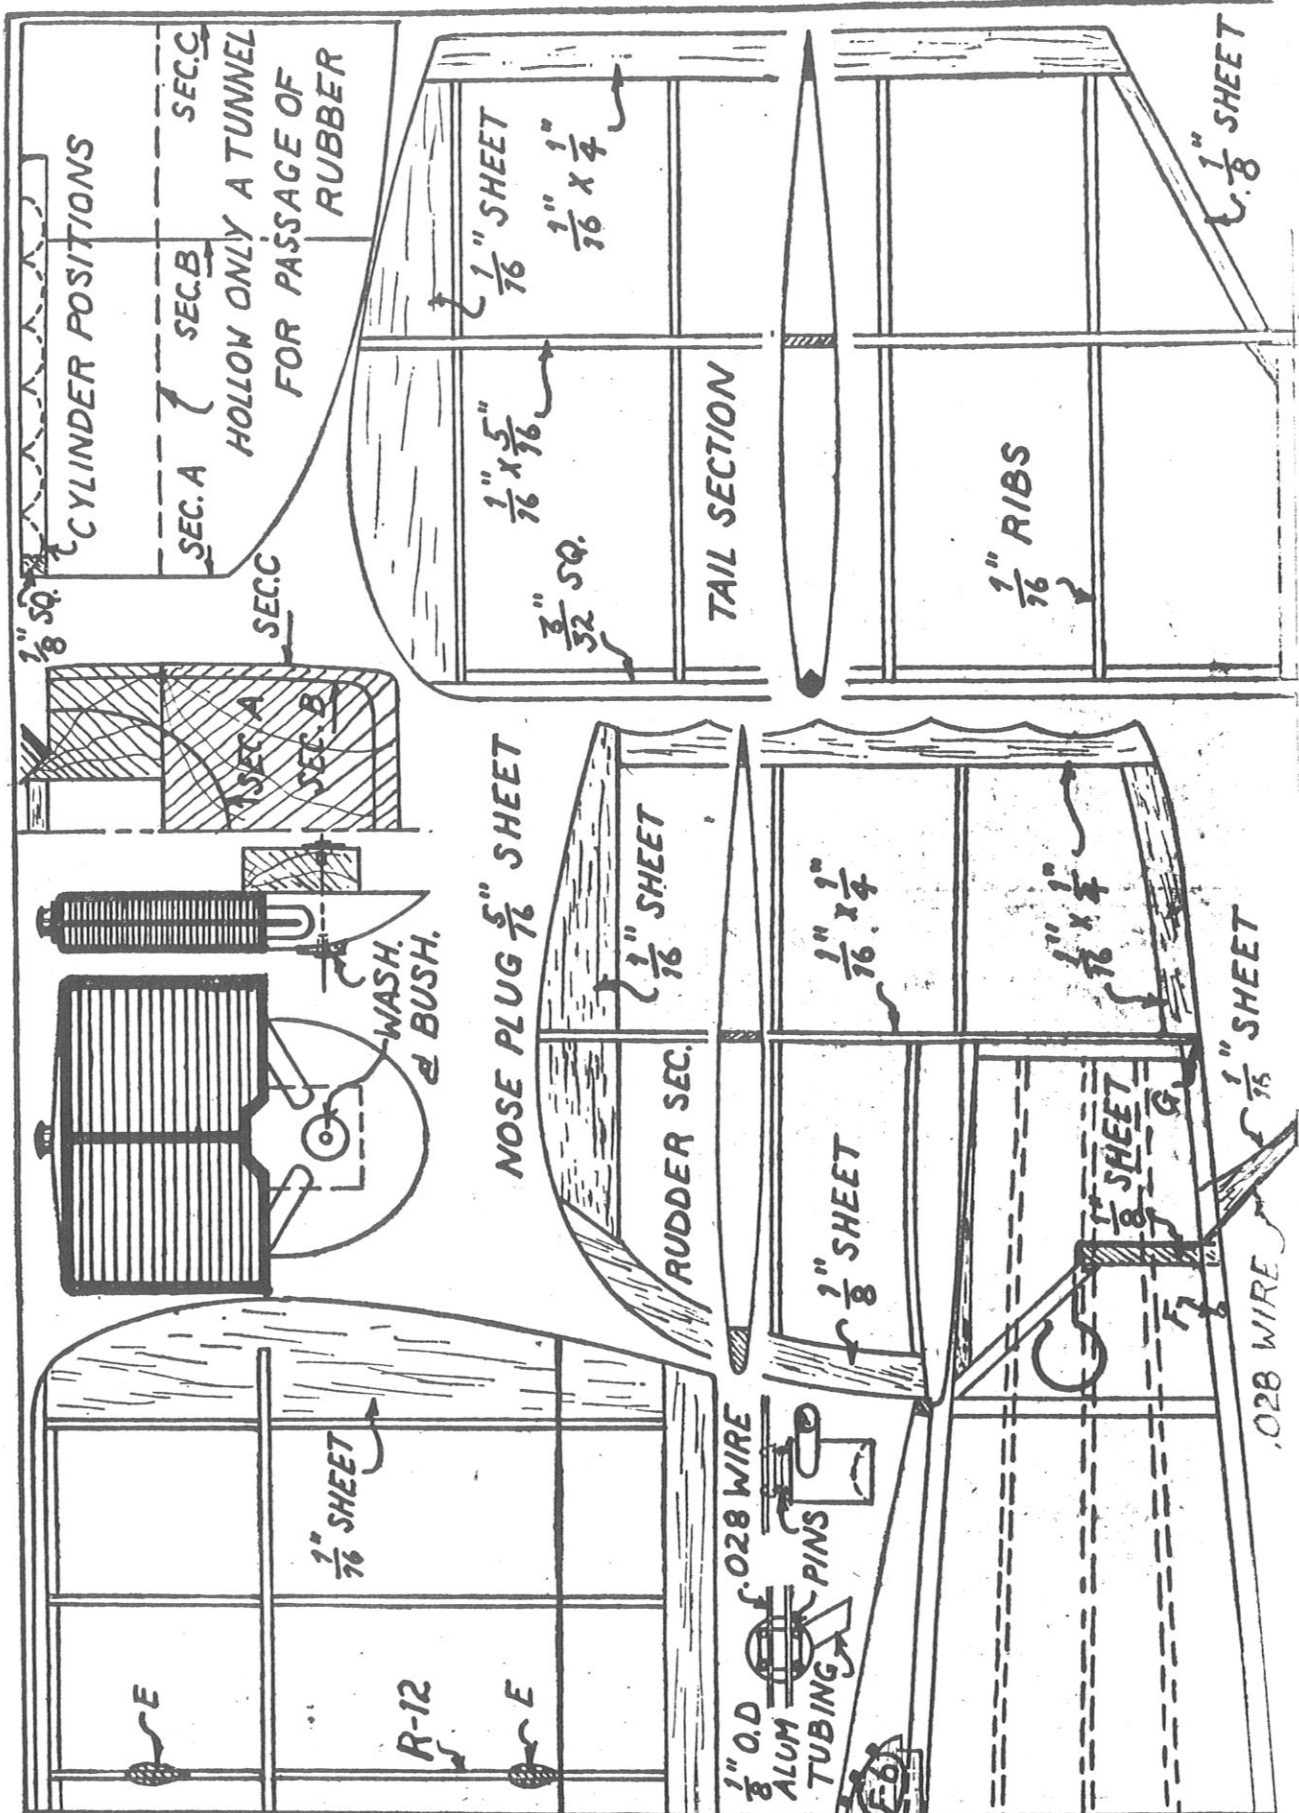 1/8" SQ.
CYLINDER POSITIONS
SEC. A
SEC.B
SEC.C
HOLLOW ONLY A TUNNEL
FOR PASSAGE OF
RUBBER
SEC.C
SEC. A
SEC. B
WASH.
& BUSH.
NOSE PLUG 5/16" SHEET
1/16" SHEET
1/16" X 1/4"
1/16" X 5/16"
3/32" SQ.
TAIL SECTION
1/16" RIBS
1/8" SHEET
1/16" SHEET
RUDDER SEC.
1/16" X 1/4"
1/8" SHEET
1/16" X 1/4"
1/16" SHEET
1/8" SHEET
G
F
.028 WIRE
1/16" SHEET
E
R-12
E
.028 WIRE
1/8" O.D
ALUM
TUBING
PINS
F-6